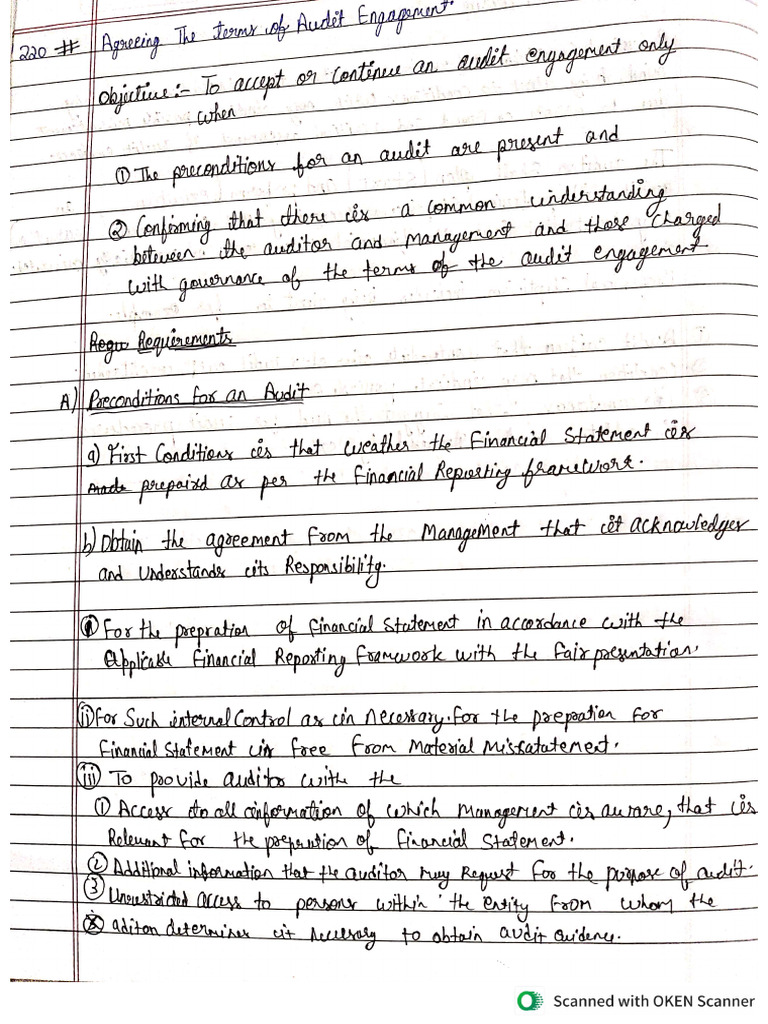 220 # Agreeing The terms of Audit Engagement.
Objective:- To accept or continue an audit engagement only
when
① The preconditions for an audit are present and
② Confirming that there is a common understanding
between the auditor and management and those charged
with governance of the terms of the audit engagement
Requ Requirements
A) Preconditions for an Audit
a) First Conditions is that weather the Financial Statement is
made prepaird as per the financial Reporting framework.
b) Obtain the agreement from the Management that it acknowledges
and understands its Responsibility.
i For the prepration of financial statement in accordance with the
Applicable financial Reporting framework with the fair presentation.
ii) For Such internal Control as is necessary. for the prepration for
financial statement is free from Material Misstatement.
iii) To provide auditor with the
① Access to all information of which management is aware, that is
Relevant for the prepration of financial statement.
② Additional information that the auditor may request for the purpose of audit.
③ Unrestricted access to persons within the entity from whom the
aditor determines it necessary to obtain audit evidence.
Scanned with OKEN Scanner